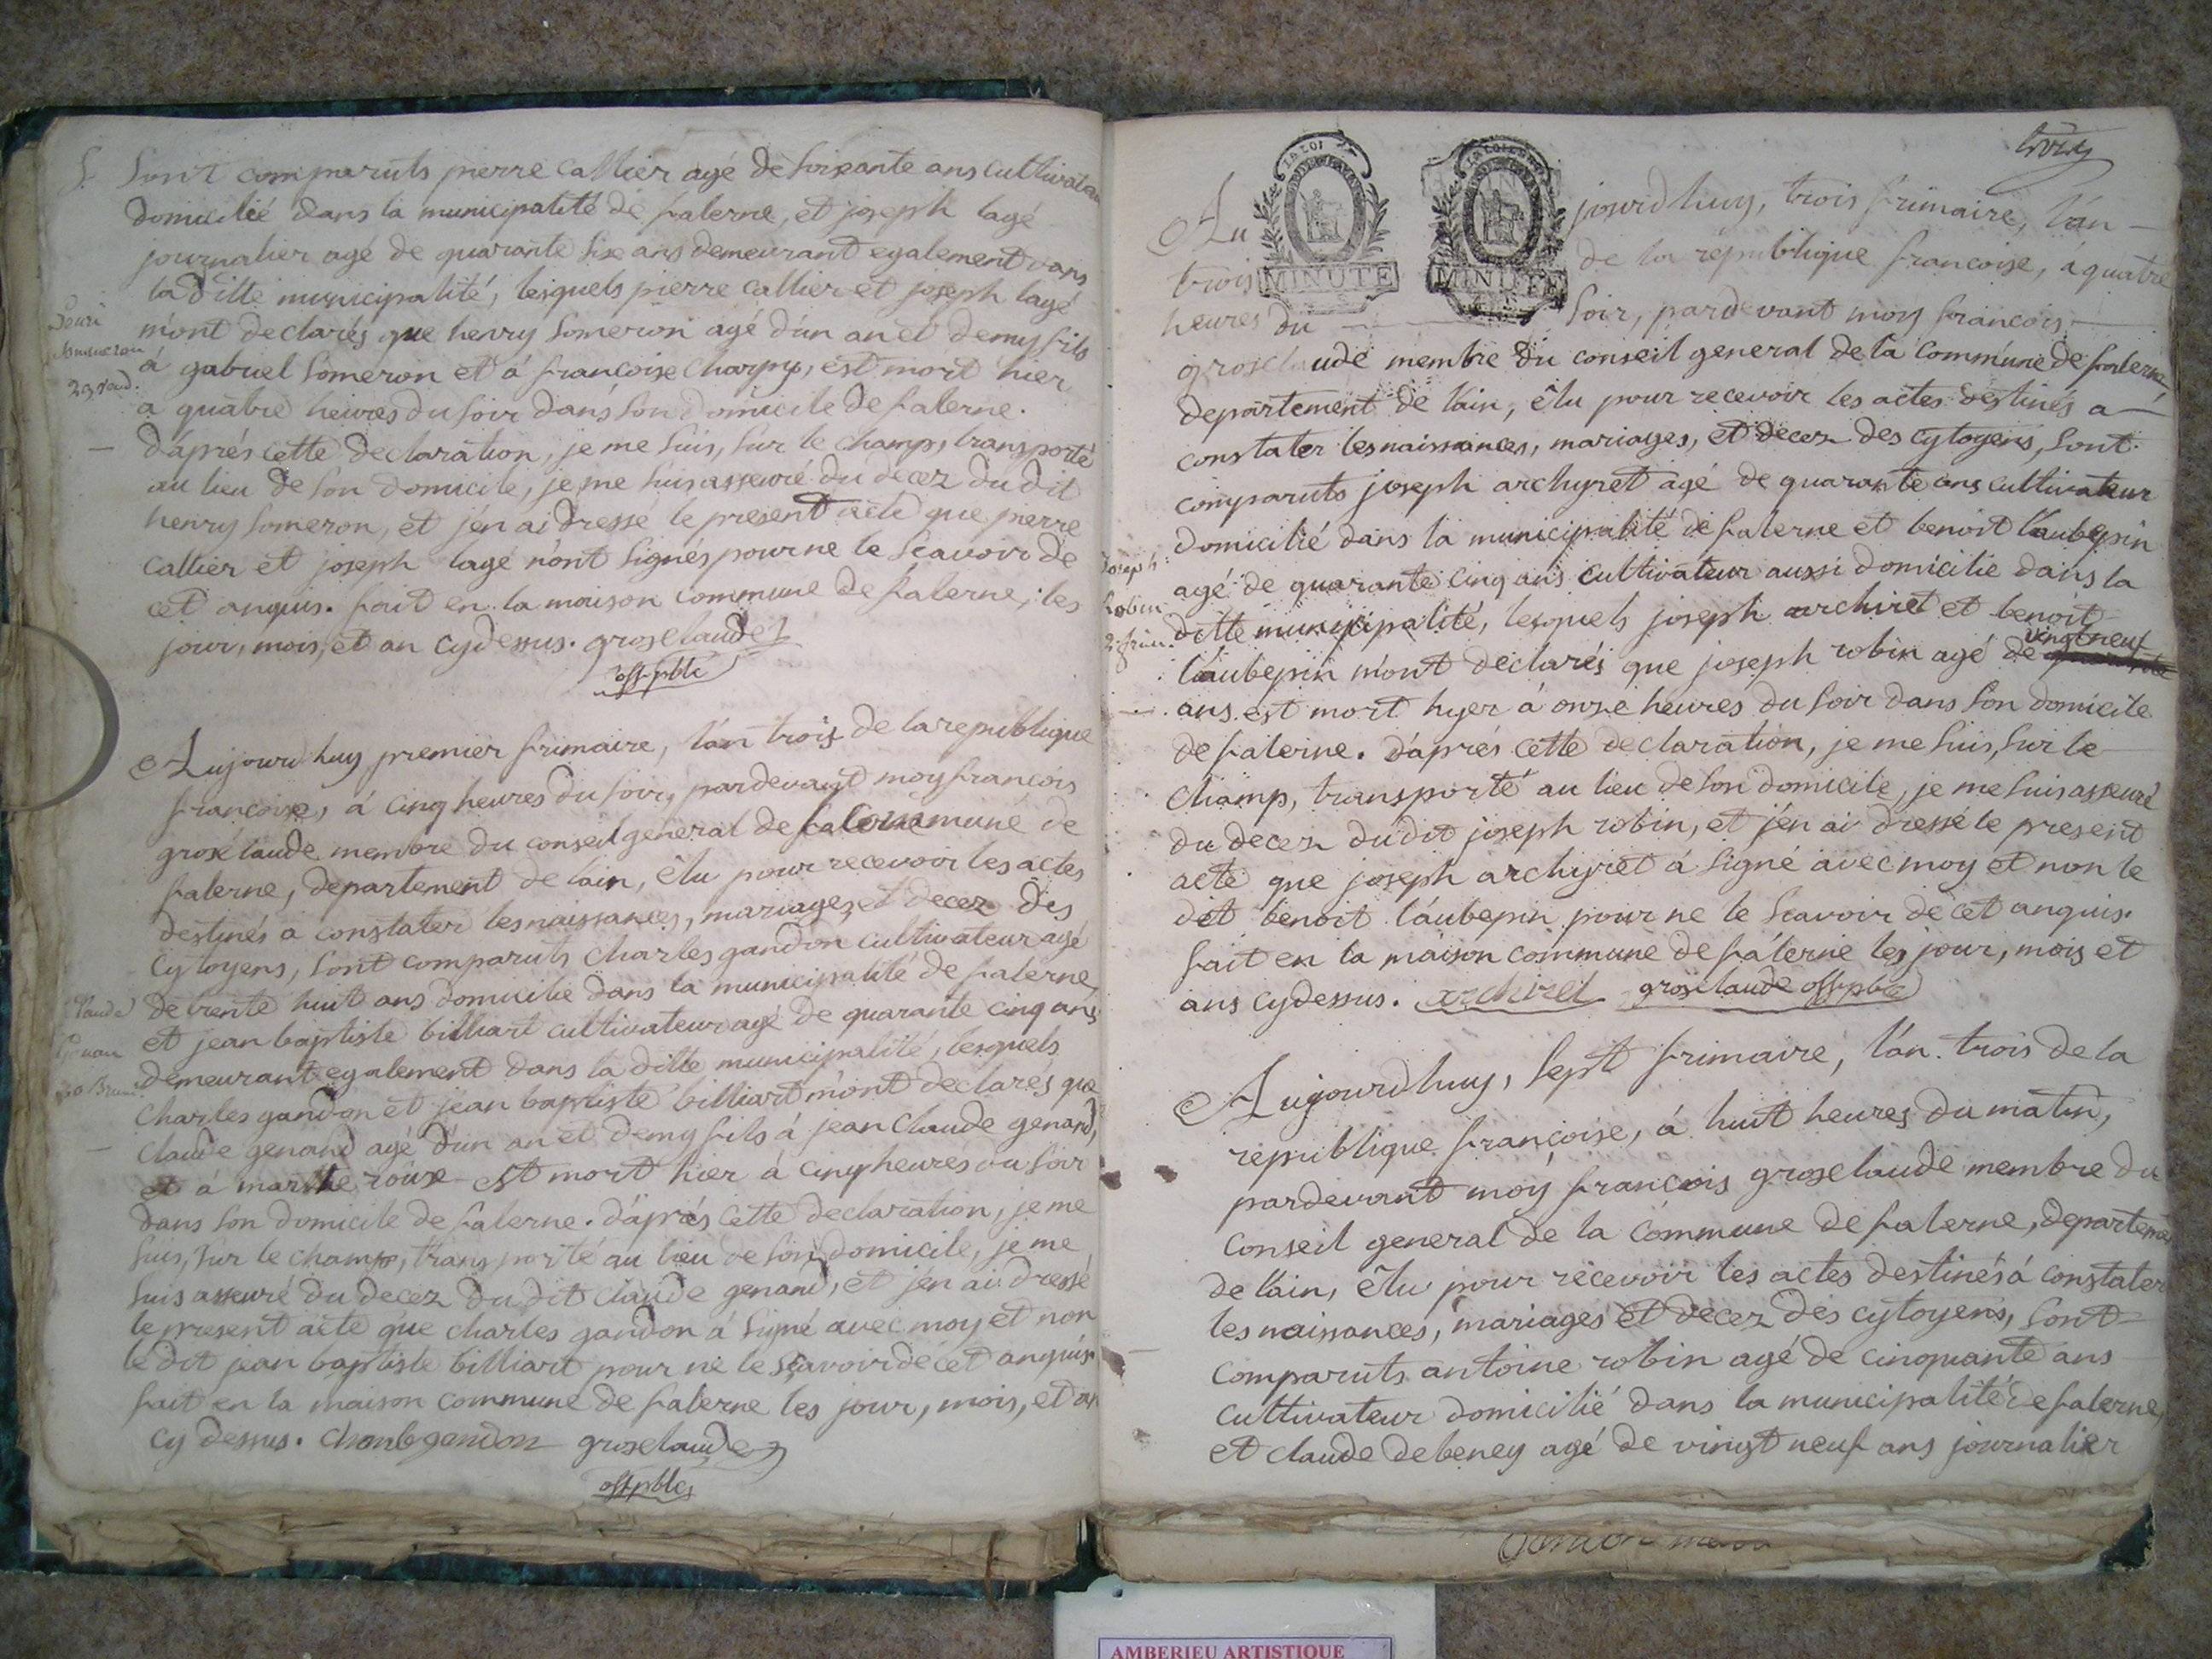 Sont comparuts pierre Callier agé de soixante ans cultivateur
domicilié dans la municipalité de salerne, et joseph lagé
journalier agé de quarante six ans demeurant egalement dans
la ditte municipalité, lesquels pierre callier et joseph lagé
m'ont declarés que henry Someron agé d'un an et demy fils
á gabriel Someron et á francoise Charpy, est mort hier
a quatre heures du soir dans son domicile de salerne.
d'aprés cette declaration, je me suis, sur le champ, transporté
au lieu de son domicile, je me suis asseuré du decez du dit
henry Someron, et j'en ai dressé le present acte que pierre
Callier et joseph lagé n'ont signés pour ne le scavoir de
cet anquis. fait en la maison commune de salerne, les
jour, mois, et an cydessus. groselaude
off. pblc
Aujourd'huy premier frimaire, l'an trois de la republique
françoise, á cinq heures du soir, pardevant moy francois
groselaude membre du conseil general de la Commune de
salerne, departement de l'ain, élu pour recevoir les actes
destinés a constater les naissances, mariages, et decez des
Cytoyens, sont comparuts Charles gandon cultivateur agé
de trente huit ans domicilié dans la municipalité de salerne,
et jean baptiste billiart cultivateur agé de quarante cinq ans
demeurant egalement dans la ditte municipalité, lesquels
Charles gandon et jean baptiste billiart m'ont declarés que
Claude genand agé d'un an et demy fils á jean Claude genand,
et á marthe roux est mort hier á cinq heures du soir
dans son domicile de salerne. d'aprés cette declaration, je me
suis, sur le champ, transporté au lieu de son domicile, je me
suis asseuré du decez du dit claude genand, et j'en ai dressé
le present acte que charles gandon á signé avec moy et non
le dit jean baptiste billiart pour ne le scavoir de cet anquis.
fait en la maison commune de salerne les jour, mois, et an
cy dessus. groselaude
off. pblc
LA LOI
MINUTE
MINUTE
Aujourd'huy, trois frimaire, l'an
trois de la république francoise, á quatre
heures du soir, pardevant moy francois
groselaude membre du conseil general de la commune de salerne,
departement de l'ain, élu pour recevoir les actes destinés a
constater les naissances, mariages, et decez des cytoyens, sont
comparuts joseph archyret agé de quarante ans cultivateur
domicilié dans la municipalité de salerne et benoit l'aubepin
agé de quarante cinq ans cultivateur aussi domicilie dans la
Joseph
robin
3. frim.
ditte municipalité, lesquels joseph archiret et benoit
l'aubepin m'ont declarés que joseph robin agé de vingt neuf
ans est mort hyer á onze heures du soir dans son domicile
de salerne. d'aprés cette declaration, je me suis, sur le
champ, transporté au lieu de son domicile, je me suis asseuré
du decez du dit joseph robin, et j'en ai dressé le present
acte que joseph archyret á signé avec moy et non le
dit benoit l'aubepin pour ne le scavoir de cet anquis.
fait en la maison commune de salerne les jour, mois et
ans cydessus. archiret groselaude off. pblc
Aujourd'huy, sept frimaire, l'an trois de la
republique françoise, á huit heures du matin,
pardevant moy françois groselaude membre du
conseil general de la commune de salerne, departement
de l'ain, élu pour recevoir les actes destinés á constater
les naissances, mariages et decez des cytoyens, sont
comparuts antoine robin agé de cinquante ans
cultivateur domicilié dans la municipalité de salerne,
et claude debeney agé de vingt neuf ans journalier
AMBERIEU ARTISTIQUE